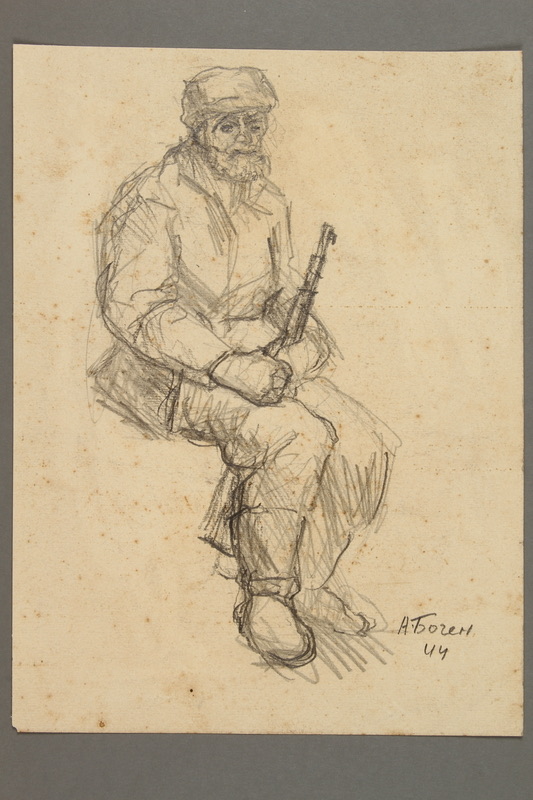 А. Боген.
44